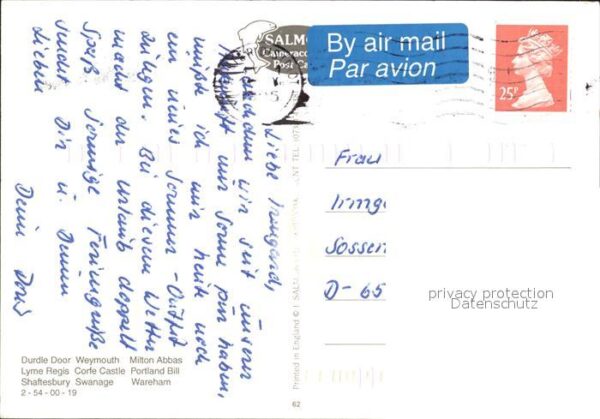 SALMO
Cameracolo
Post Ca
By air mail
Par avion
25P
Liebe Irmgard,
Nachdem wir seit unserer
Ankunft nur Sonne pur haben,
mußte ich mir heute noch
ein neues Sommer-Outfit
zulegen. Bei diesem Wetter
macht der Urlaub doppelt
Spaß. Sonnige Feriengrüße
sendet Dir u. Deinen
Lieben
Deine Doris
Frau
Irmg
Sossen
D-65
privacy protection
Datenschutz
Durdle Door Weymouth Milton Abbas
Lyme Regis Corfe Castle Portland Bill
Shaftesbury Swanage Wareham
2-54-00-19
Printed in England © J. SALM
62